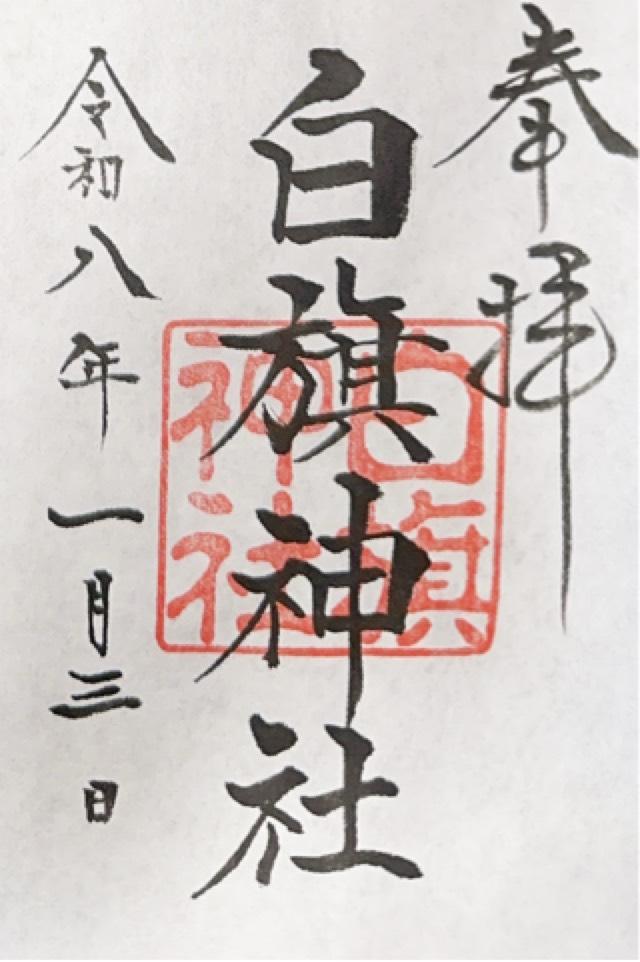 奉拝
白旗神社
白旗
神社
令和八年一月三日